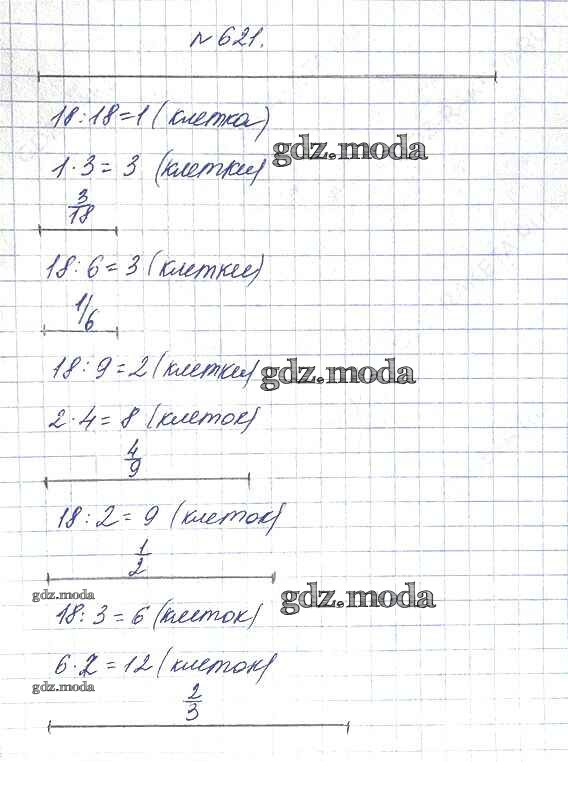 № 621.
18 : 18 = 1 (клетка)
gdz.moda
1 · 3 = 3 (клетки)
3/18
18 : 6 = 3 (клетки)
1/6
18 : 9 = 2 (клетки)
gdz.moda
2 · 4 = 8 (клеток)
4/9
18 : 2 = 9 (клеток)
1/2
gdz.moda
gdz.moda
18 : 3 = 6 (клеток)
6 · 2 = 12 (клеток)
gdz.moda
2/3